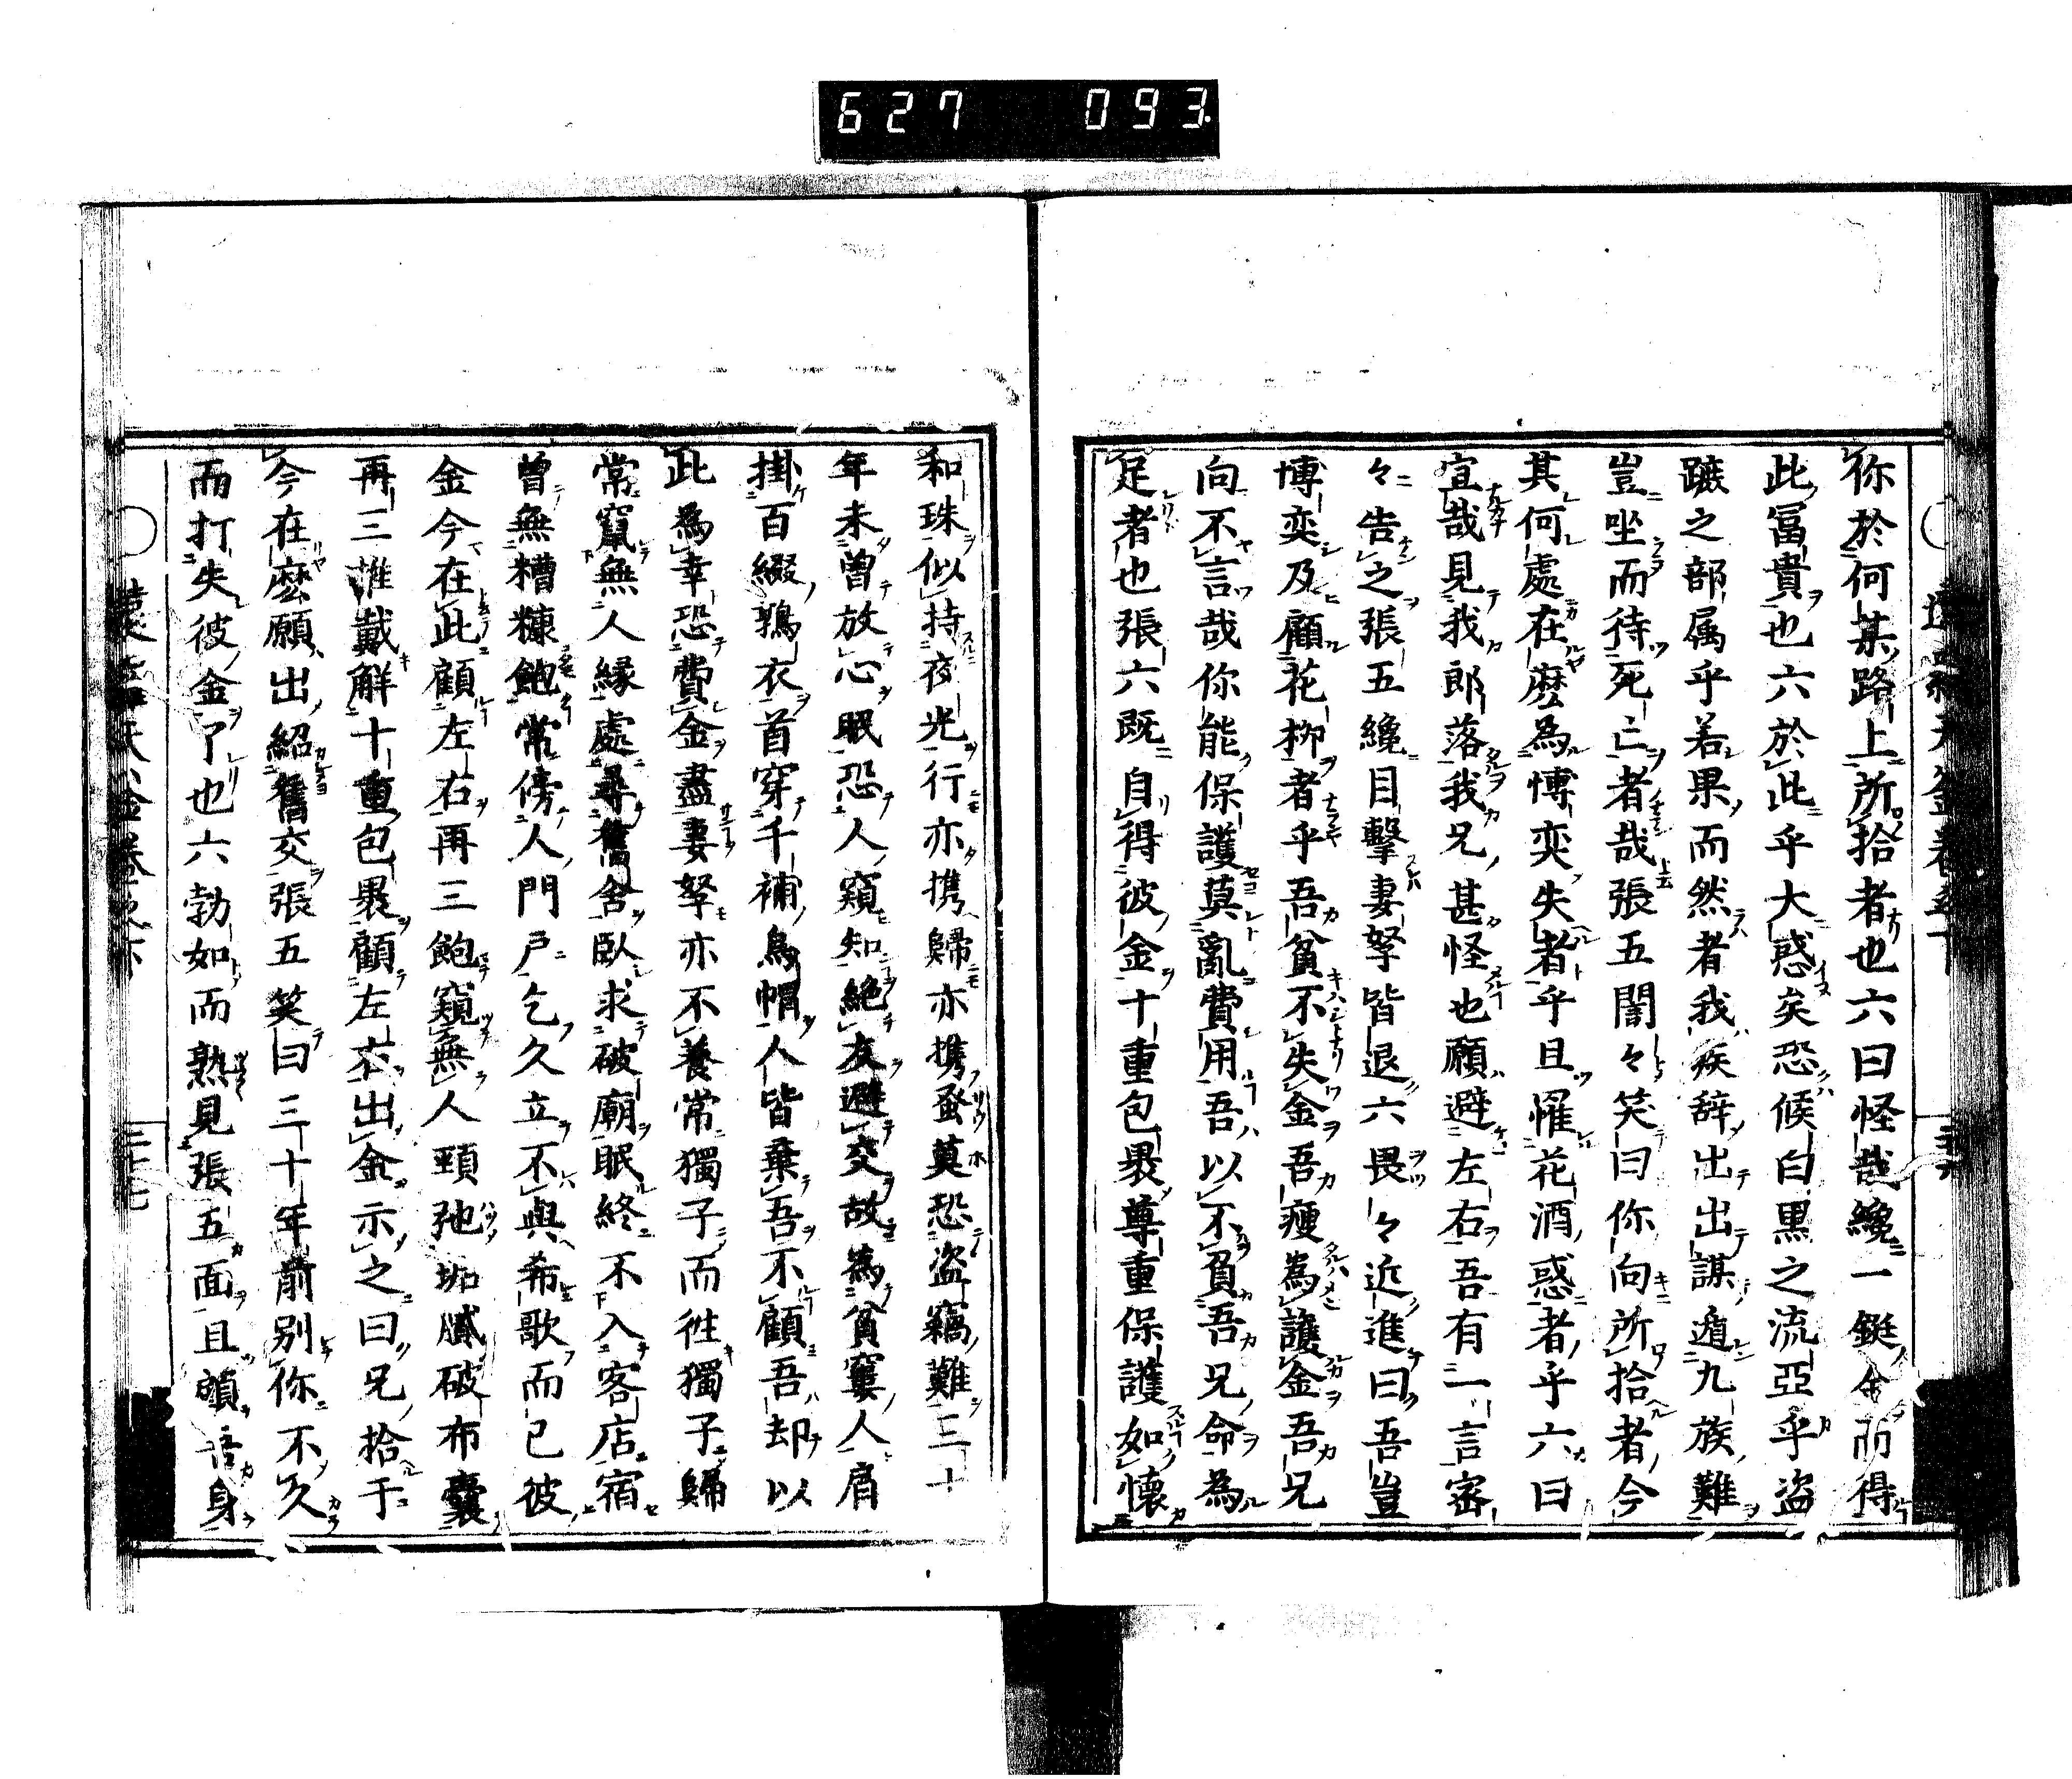 627 093
你於何某路上所拾者也六曰怪哉纔一鋌金而得
此冨貴也六於此乎大惑矣恐候白黒之流亞乎盗
蹠之部属乎若果而然者我疾辞出出謀遁九族難
豈坐而待死亡者哉張五誾々笑曰你向所拾者今
其何處在麼為博奕失者乎且懼花酒惑者乎六曰
宜哉見我郎落我兄甚怪也願避左右吾有一言密
々告之張五纔目擊妻孥皆退六畏々近進曰吾豈
博奕及顧花柳者乎吾貧不失金吾瘦為護金吾兄
向不言哉你能保護莫亂費用吾以不負吾兄命為
足者也張六既自得彼金十重包裹尊重保護如懐
和珠似持夜光行亦携歸亦携蚤莫恐盗竊難三十
年未曾放心眠恐人窺知絶友避交故為貧窶人肩
掛百綴鶉衣首穿千補烏帽人皆棄吾不顧吾却以
此為幸恐費金盡妻孥亦不養常獨子而徃獨子歸
常竄無人縁處尋舊舎臥求破廟眠終不入客店宿
曾無糟糠飽常傍人門戸乞久立不與希歌而已彼
金今在此顧左右再三飽窺無人頸弛垢膩破布囊
再三推戴解十重包裹顧左右出金示之曰兄拾于
今在麼願出紹舊交張五笑曰三十年前别你不久
而打失彼金了也六勃如而熟見張五面且顧吾身